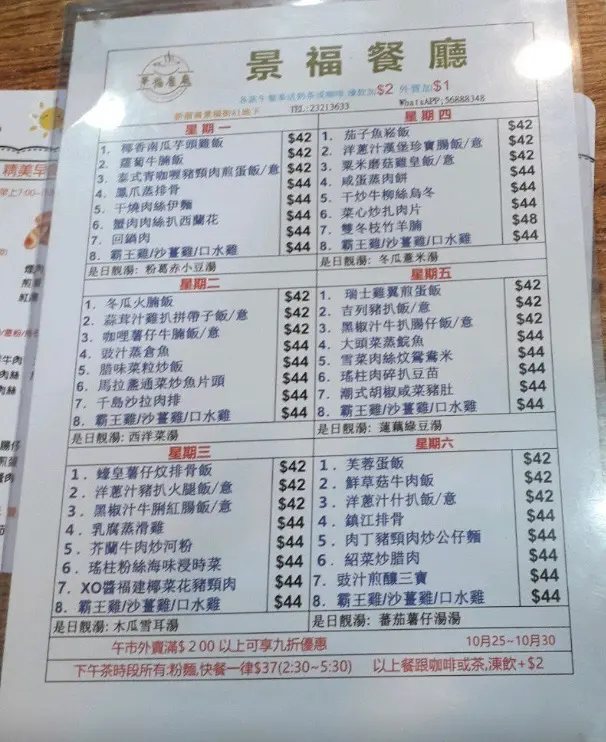 景福餐廳
景福餐廳
各款午餐奉送奶茶或咖啡,凍飲加$2 外賣加$1
新蒲崗景福街81地下 TEL:23213633 WhatsAPP;56888348
星期一
1. 椰香南瓜芋頭雞飯 $42
2. 蘿蔔牛腩飯 $42
3. 泰式青咖喱豬頸肉煎蛋飯/意 $42
4. 鳳爪蒸排骨 $44
5. 干燒肉絲伊麵 $44
6. 蟹肉肉絲扒西蘭花 $44
7. 回鍋肉 $44
8. 霸王雞/沙薑雞/口水雞 $44
是日靚湯: 粉葛赤小豆湯
星期二
1. 冬瓜火腩飯 $42
2. 蒜茸汁雞扒拼帶子飯/意 $42
3. 咖喱薯仔牛腩飯/意 $42
4. 豉汁蒸倉魚 $44
5. 腊味菜粒炒飯 $44
6. 馬拉盞通菜炒魚片頭 $44
7. 千島沙拉肉排 $44
8. 霸王雞/沙薑雞/口水雞 $44
是日靚湯: 西洋菜湯
星期三
1. 蠔皇薯仔炆排骨飯 $42
2. 洋蔥汁豬扒火腿飯/意 $42
3. 黑椒汁牛脷紅腸飯/意 $42
4. 乳腐蒸滑雞 $44
5. 芥蘭牛肉炒河粉 $44
6. 瑤柱粉絲海味浸時菜 $44
7. XO醬福建椰菜花豬頸肉 $44
8. 霸王雞/沙薑雞/口水雞 $44
是日靚湯: 木瓜雪耳湯
星期四
1. 茄子魚崧飯 $42
2. 洋蔥汁漢堡珍寶腸飯/意 $42
3. 粟米磨菇雞皇飯/意 $42
4. 咸蛋蒸肉餅 $44
5. 干炒牛柳絲烏冬 $44
6. 菜心炒扎肉片 $44
7. 雙冬枝竹羊腩 $48
8. 霸王雞/沙薑雞/口水雞 $44
是日靚湯: 冬瓜薏米湯
星期五
1. 瑞士雞翼煎蛋飯 $42
2. 吉列豬扒飯/意 $42
3. 黑椒汁牛扒腸仔飯/意 $42
4. 大頭菜蒸鯇魚 $44
5. 雪菜肉絲炆鴛鴦米 $44
6. 瑤柱肉碎扒豆苗 $44
7. 潮式胡椒咸菜豬肚 $44
8. 霸王雞/沙薑雞/口水雞 $44
是日靚湯: 蓮藕綠豆湯
星期六
1. 芙蓉蛋飯 $42
2. 鮮草菇牛肉飯 $42
3. 洋蔥汁什扒飯/意 $42
4. 鎮江排骨 $44
5. 肉丁豬頸肉炒公仔麵 $44
6. 紹菜炒腊肉 $44
7. 豉汁煎釀三寶 $44
8. 霸王雞/沙薑雞/口水雞 $44
是日靚湯: 蕃茄薯仔湯湯
午市外賣滿$200以上可享九折優惠 10月25~10月30
下午茶時段所有:粉麵,快餐一律$37(2:30~5:30) 以上餐跟咖啡或茶,凍飲+$2
精美早
早上7:00-1